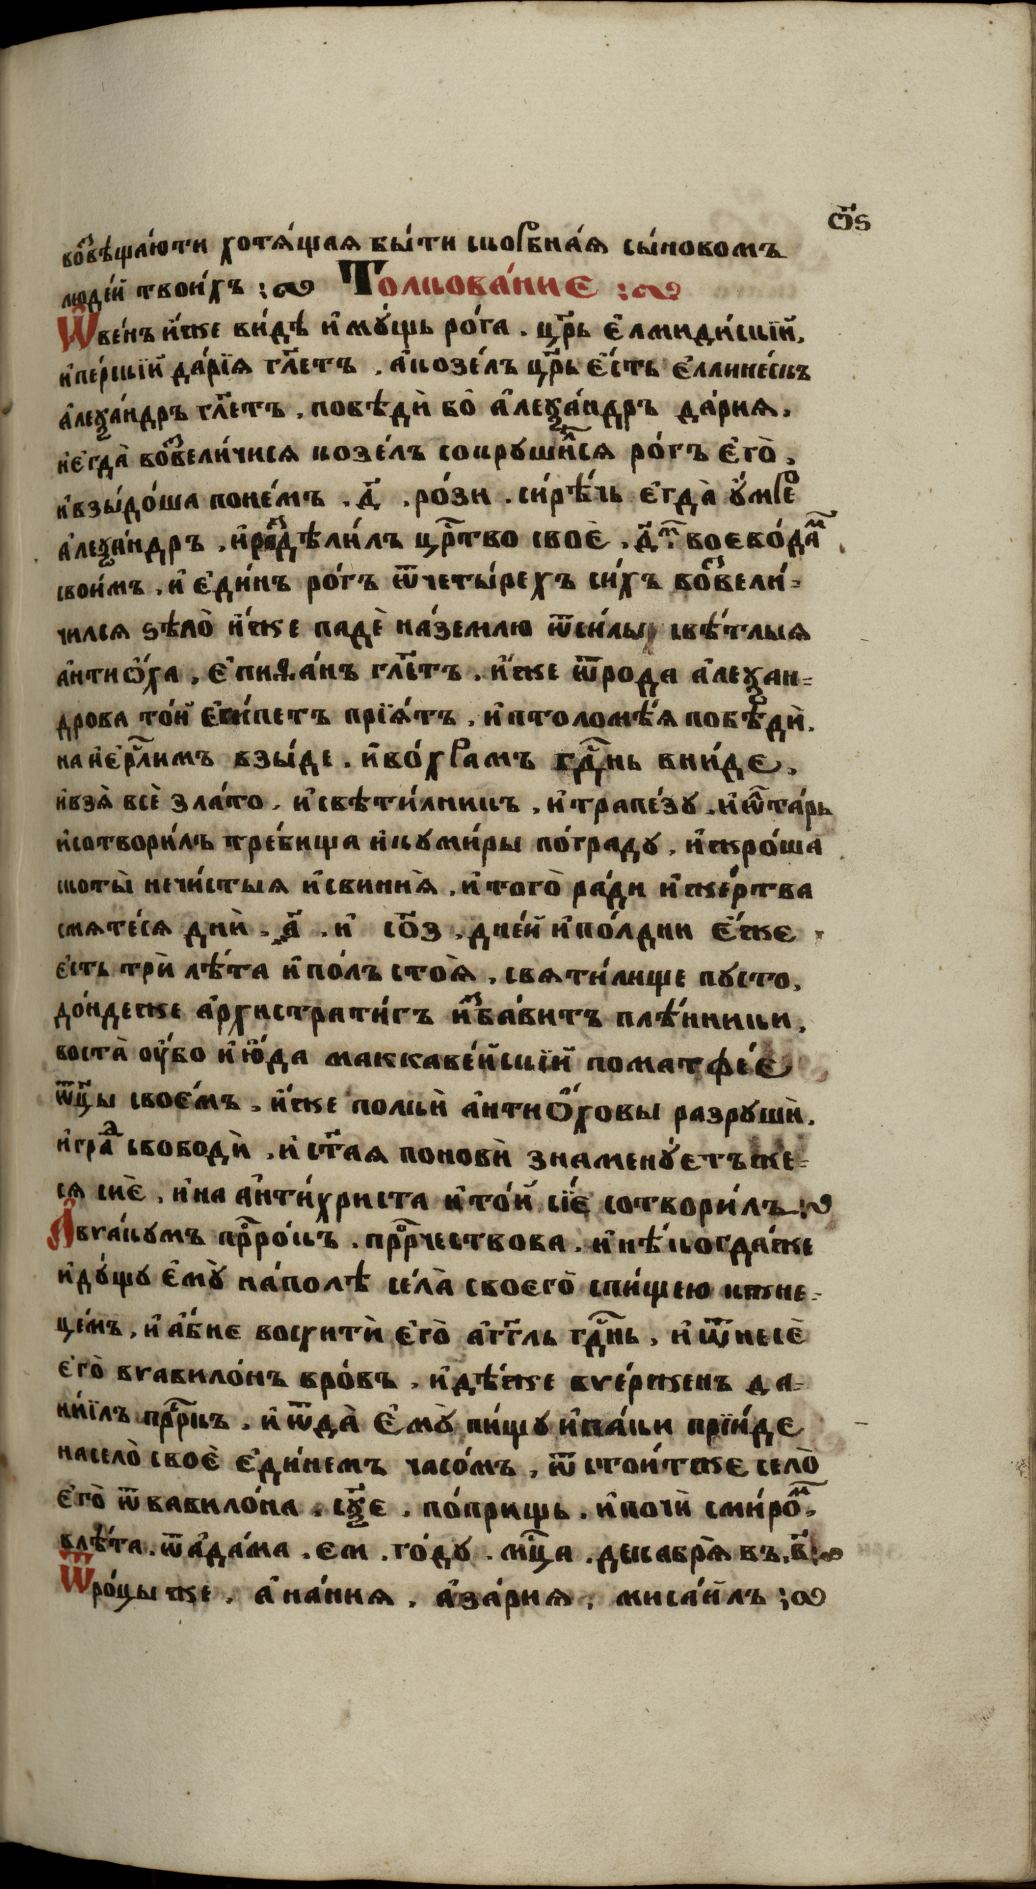 ѻ҃ѕ
возвѣща́юти хотѧ́щаѧ бы́ти скорбна́ѧ сы́новомъ
люде́й твои́хъ :~ Толкова́ниє :~
Ѿве́нъ и҆́же ви́дѣ и҆мꙋ́щь ро́га . цр҃ь є҆лмиди́скїй,
и҆пе́рскїй да́рїѧ гл҃етъ . а҆козе́лъ цр҃ь є҆́сть є҆ллине́скъ
а҆леѯа́ндръ гл҃етъ , побѣдѝ бо̀ а҆леѯа́ндръ да́риѧ ,
и҆єгда̀ возвели́чисѧ козе́лъ сокрꙋши́сѧ ро́гъ є҆го̀ ,
и҆взы́до́ша поне́мъ . д҃ . ро́зи . си́рѣ́чь є҆гда̀ ᲂу҆́мре
а҆леѯа́ндръ , и҆раздѣли́лъ цр҃тво своѐ , д҃тм воєво́дамъ
свои́мъ . и҆ є҆ди́нъ ро́гъ ѿчеты́рехъ си́хъ возвели́-
чилсѧ ѕѣло̀ и҆́же падѐ на́землю ѿси́лы свѣ́тлыѧ
а҆нтиѻ́ха , є҆пиѳа́нъ гл҃етъ . и҆́же ѿрода а҆леѯан=
дрова то́й є҆ги́петъ прїѧ́тъ , и҆птоломѣ́ѧ побѣдѝ.
на и҆єрⷭ҇лимъ взы́де . и҆во́храмъ гдⷭ҇нь вни́де ,
и҆взѧ̀ всѐ зла́то , и҆свѣти́лникъ , и҆трапе́зꙋ . и҆ѻ҆лта́рь
и҆сотвори́лъ тре́бища и҆кꙋми́ры по́градꙋ , и҆жро́ша
скоты̀ нечи́стыѧ и҆свиниѧ̀ , и҆того̀ ра́ди и҆же́ртва
смѧте́сѧ днѝ . а҃ . и҆ со҃з . дне́й и҆по́лдни є҆́же
є҆сть трѝ лѣ́та и҆по́лъ стоѧ̀ , свѧти́лище пꙋсто ,
до́ндеже а҆рхистрати́гъ и҆зба́витъ плѣ́нники ,
воста̀ ᲂу҆́бо и҆ ю҆́да маккаве́йскїй поматфе́є
ѿц҃ы своє́мъ . и҆́же полкѝ а҆нтиѻ́ховы разрꙋшѝ.
и҆гра́д свободѝ , и҆ ст҃аѧ поновѝ знаменꙋ́етъже=
сѧ сиѐ , и҆на а҆нти́христа и҆то́й сїє́ сотвори́лъ :~
А҆вваќꙋмъ прⷪ҇ро́къ . прⷪ҇рчествова . и҆нѣ́когда́же
и҆дꙋ́щꙋ є҆мꙋ̀ на́полѣ села̀ своєго̀ спи́щею кжне=
це́мъ , и҆ а҆́биє восхитѝ є҆го̀ а҆гг҃лъ гдⷭ҇нь , и҆ ѿнесѐ
є҆го̀ ввавило́нъ вро́въ , и҆дѣ́же вве́рженъ да=
нїи́лъ прⷪ҇ркъ . и҆ ѿда̀ є҆мꙋ̀ пи́щꙋ и҆па́ки прїи́де
насело̀ своѐ є҆ди́немъ часо́мъ , ѿ стои́тже село̀
є҆го̀ ѿ вавило́на . сѯ҃е . по́прищь . и҆почѝ смиро́м .
влѣ́та . ѿ а҆да́ма . єм . го́дꙋ . мц҃а . декабрѧ̀ въ . в҃ :~
Ѿро́цы же . а҆на́ниѧ . а҆за́риѧ , миса́илъ :~